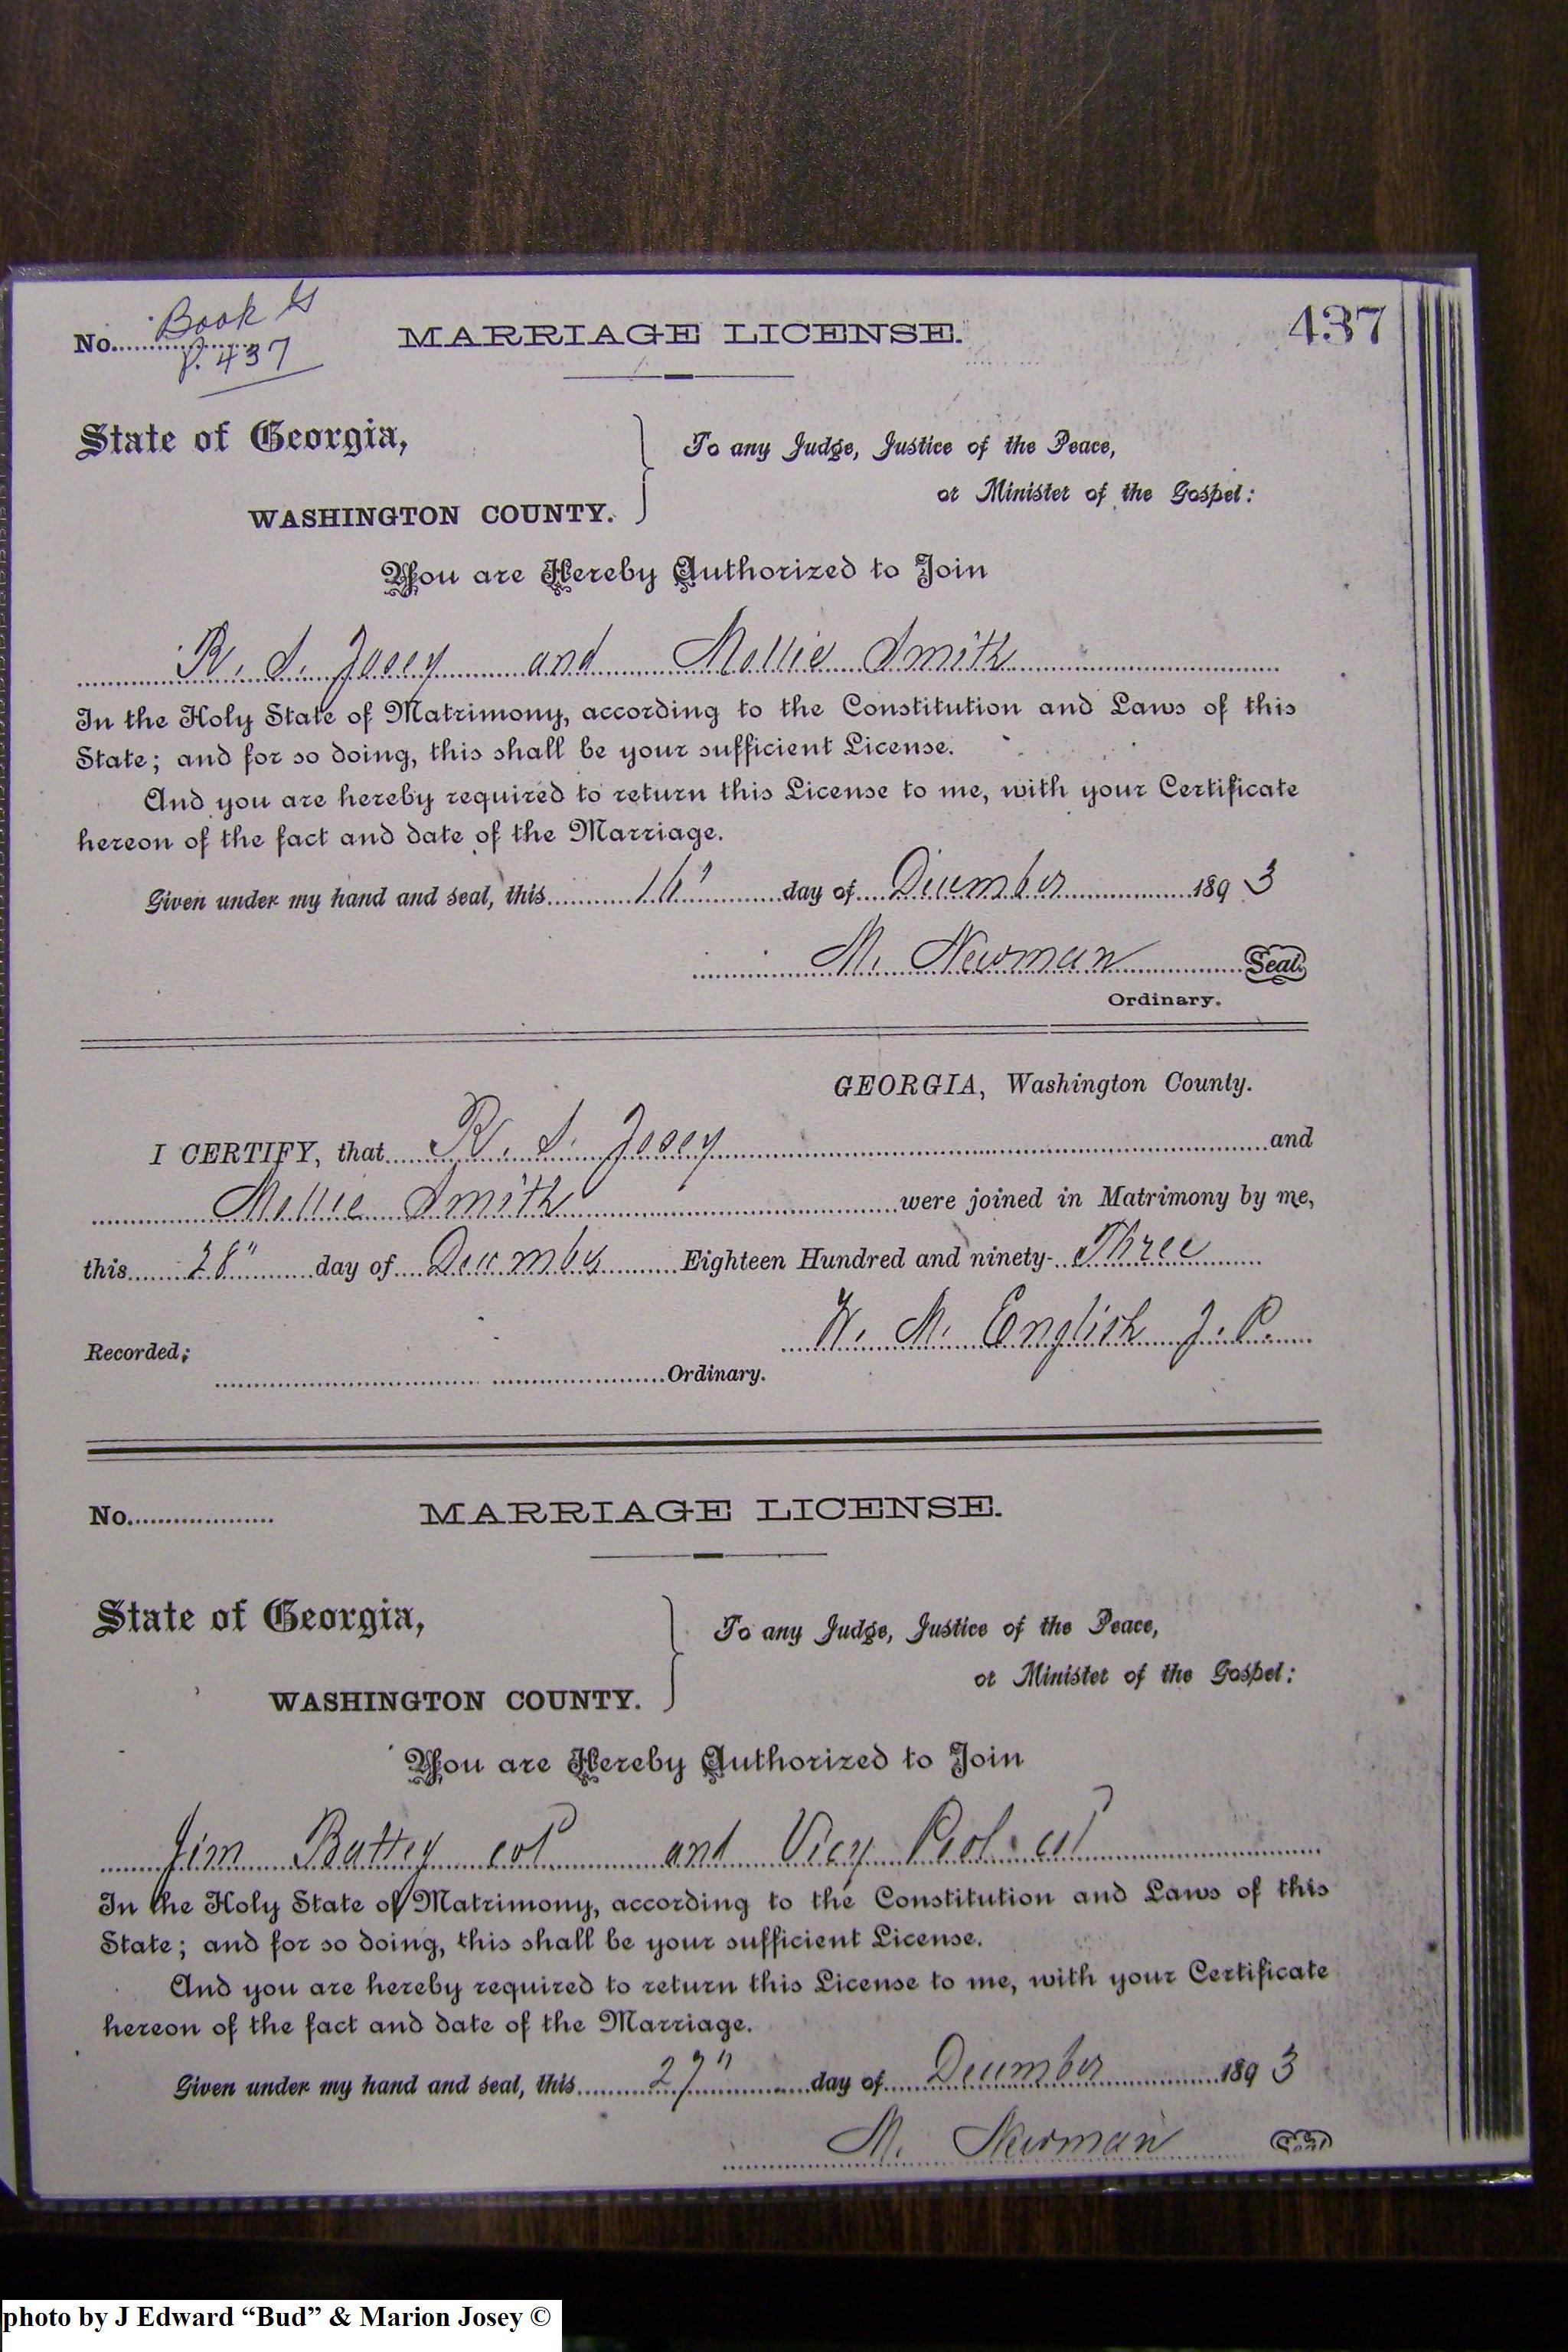 No. Book G
P. 437
MARRIAGE LICENSE.
437
State of Georgia,
WASHINGTON COUNTY.
To any Judge, Justice of the Peace,
or Minister of the Gospel:
You are Hereby Authorized to Join
R. S. Josey and Mollie Smith
In the Holy State of Matrimony, according to the Constitution and Laws of this
State; and for so doing, this shall be your sufficient License.
And you are hereby required to return this License to me, with your Certificate
hereon of the fact and date of the Marriage.
Given under my hand and seal, this 16" day of December 1893
M. Newman Seal.
Ordinary.
GEORGIA, Washington County.
I CERTIFY, that R. S. Josey and
Mollie Smith were joined in Matrimony by me,
this 28" day of December Eighteen Hundred and ninety-Three
W. M. English J. P.
Recorded; Ordinary.
No.
MARRIAGE LICENSE.
State of Georgia,
WASHINGTON COUNTY.
To any Judge, Justice of the Peace,
or Minister of the Gospel:
You are Hereby Authorized to Join
Jim Battey col and Vicy col
In the Holy State of Matrimony, according to the Constitution and Laws of this
State; and for so doing, this shall be your sufficient License.
And you are hereby required to return this License to me, with your Certificate
hereon of the fact and date of the Marriage.
Given under my hand and seal, this 27" day of December 1893
M. Newman Seal
photo by J Edward “Bud” & Marion Josey ©